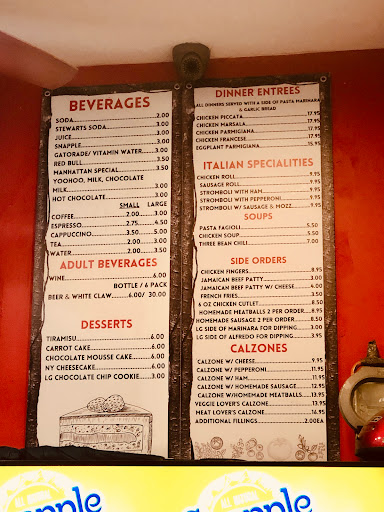 BEVERAGES
SODA 2.00
STEWARTS SODA 3.00
JUICE 3.00
SNAPPLE 3.00
GATORADE/ VITAMIN WATER 3.00
RED BULL 3.50
MANHATTAN SPECIAL 3.50
YOOHOO, MILK, CHOCOLATE
MILK 3.00
HOT CHOCOLATE 3.00
SMALL LARGE
COFFEE 2.00 3.00
ESPRESSO 2.75 4.50
CAPPUCCINO 3.50 5.00
TEA 2.00 3.00
WATER 2.00 3.50
ADULT BEVERAGES
WINE 6.00
BOTTLE / 6 PACK
BEER & WHITE CLAW 6.00/ 30.00
DESSERTS
TIRAMISU 6.00
CARROT CAKE 6.00
CHOCOLATE MOUSSE CAKE 6.00
NY CHEESECAKE 6.00
LG CHOCOLATE CHIP COOKIE 3.00
DINNER ENTREES
ALL DINNERS SERVED WITH A SIDE OF PASTA MARINARA
& GARLIC BREAD
CHICKEN PICCATA 17.95
CHICKEN MARSALA 17.95
CHICKEN PARMIGIANA 17.95
CHICKEN FRANCESE 17.95
EGGPLANT PARMIGIANA 15.95
ITALIAN SPECIALITIES
CHICKEN ROLL 9.95
SAUSAGE ROLL 9.95
STROMBOLI WITH HAM 9.95
STROMBOLI WITH PEPPERONI 9.95
STROMBOLI W/ SAUSAGE & MOZZ 9.95
SOUPS
PASTA FAGIOLI 5.50
CHICKEN SOUP 5.50
THREE BEAN CHILI 7.00
SIDE ORDERS
CHICKEN FINGERS 8.95
JAMAICAN BEEF PATTY 3.50
JAMAICAN BEEF PATTY W/ CHEESE 4.00
FRENCH FRIES 3.95
6 OZ CHICKEN CUTLET 8.50
HOMEMADE MEATBALLS 2 PER ORDER 8.50
HOMEMADE SAUSAGE 2 PER ORDER 8.50
LG SIDE OF MARINARA FOR DIPPING 3.00
LG SIDE OF ALFREDO FOR DIPPING 3.95
CALZONES
CALZONE W/ CHEESE 9.95
CALZONE W/ PEPPERONI 11.95
CALZONE W/ HAM 11.95
CALZONE W/ HOMEMADE SAUSAGE 12.95
CALZONE W/HOMEMADE MEATBALLS 12.95
VEGGIE LOVER'S CALZONE 13.95
MEAT LOVER'S CALZONE 14.95
ADDITIONAL FILLINGS 2.00EA
ALL NATURAL
Snapple
ALL NATURAL
Snapple